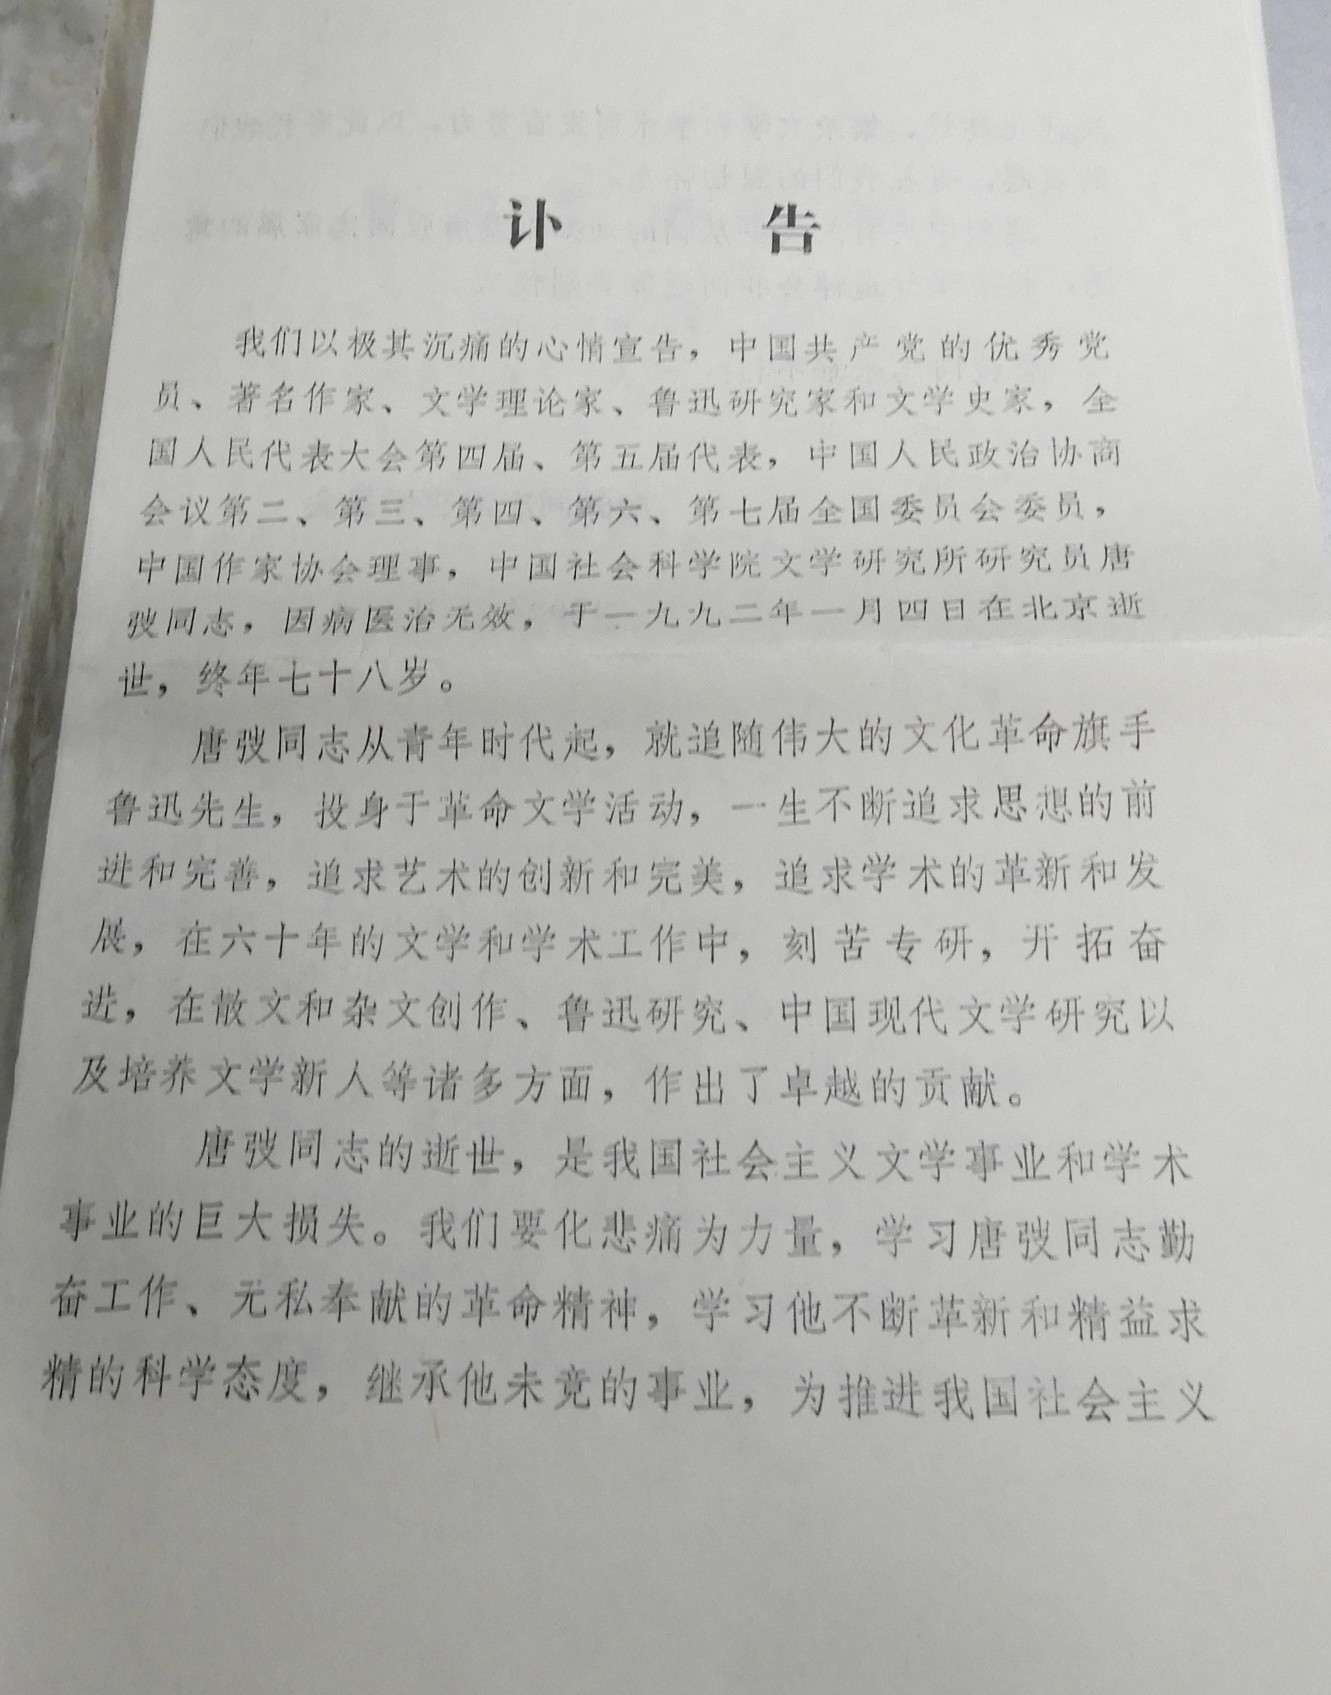 讣 告
我们以极其沉痛的心情宣告，中国共产党的优秀党
员、著名作家、文学理论家、鲁迅研究家和文学史家，全
国人民代表大会第四届、第五届代表，中国人民政治协商
会议第二、第三、第四、第六、第七届全国委员会委员，
中国作家协会理事，中国社会科学院文学研究所研究员唐
弢同志，因病医治无效，于一九九二年一月四日在北京逝
世，终年七十八岁。
唐弢同志从青年时代起，就追随伟大的文化革命旗手
鲁迅先生，投身于革命文学活动，一生不断追求思想的前
进和完善，追求艺术的创新和完美，追求学术的革新和发
展，在六十年的文学和学术工作中，刻苦专研，开拓奋
进，在散文和杂文创作、鲁迅研究、中国现代文学研究以
及培养文学新人等诸多方面，作出了卓越的贡献。
唐弢同志的逝世，是我国社会主义文学事业和学术
事业的巨大损失。我们要化悲痛为力量，学习唐弢同志勤
奋工作、无私奉献的革命精神，学习他不断革新和精益求
精的科学态度，继承他未竟的事业，为推进我国社会主义